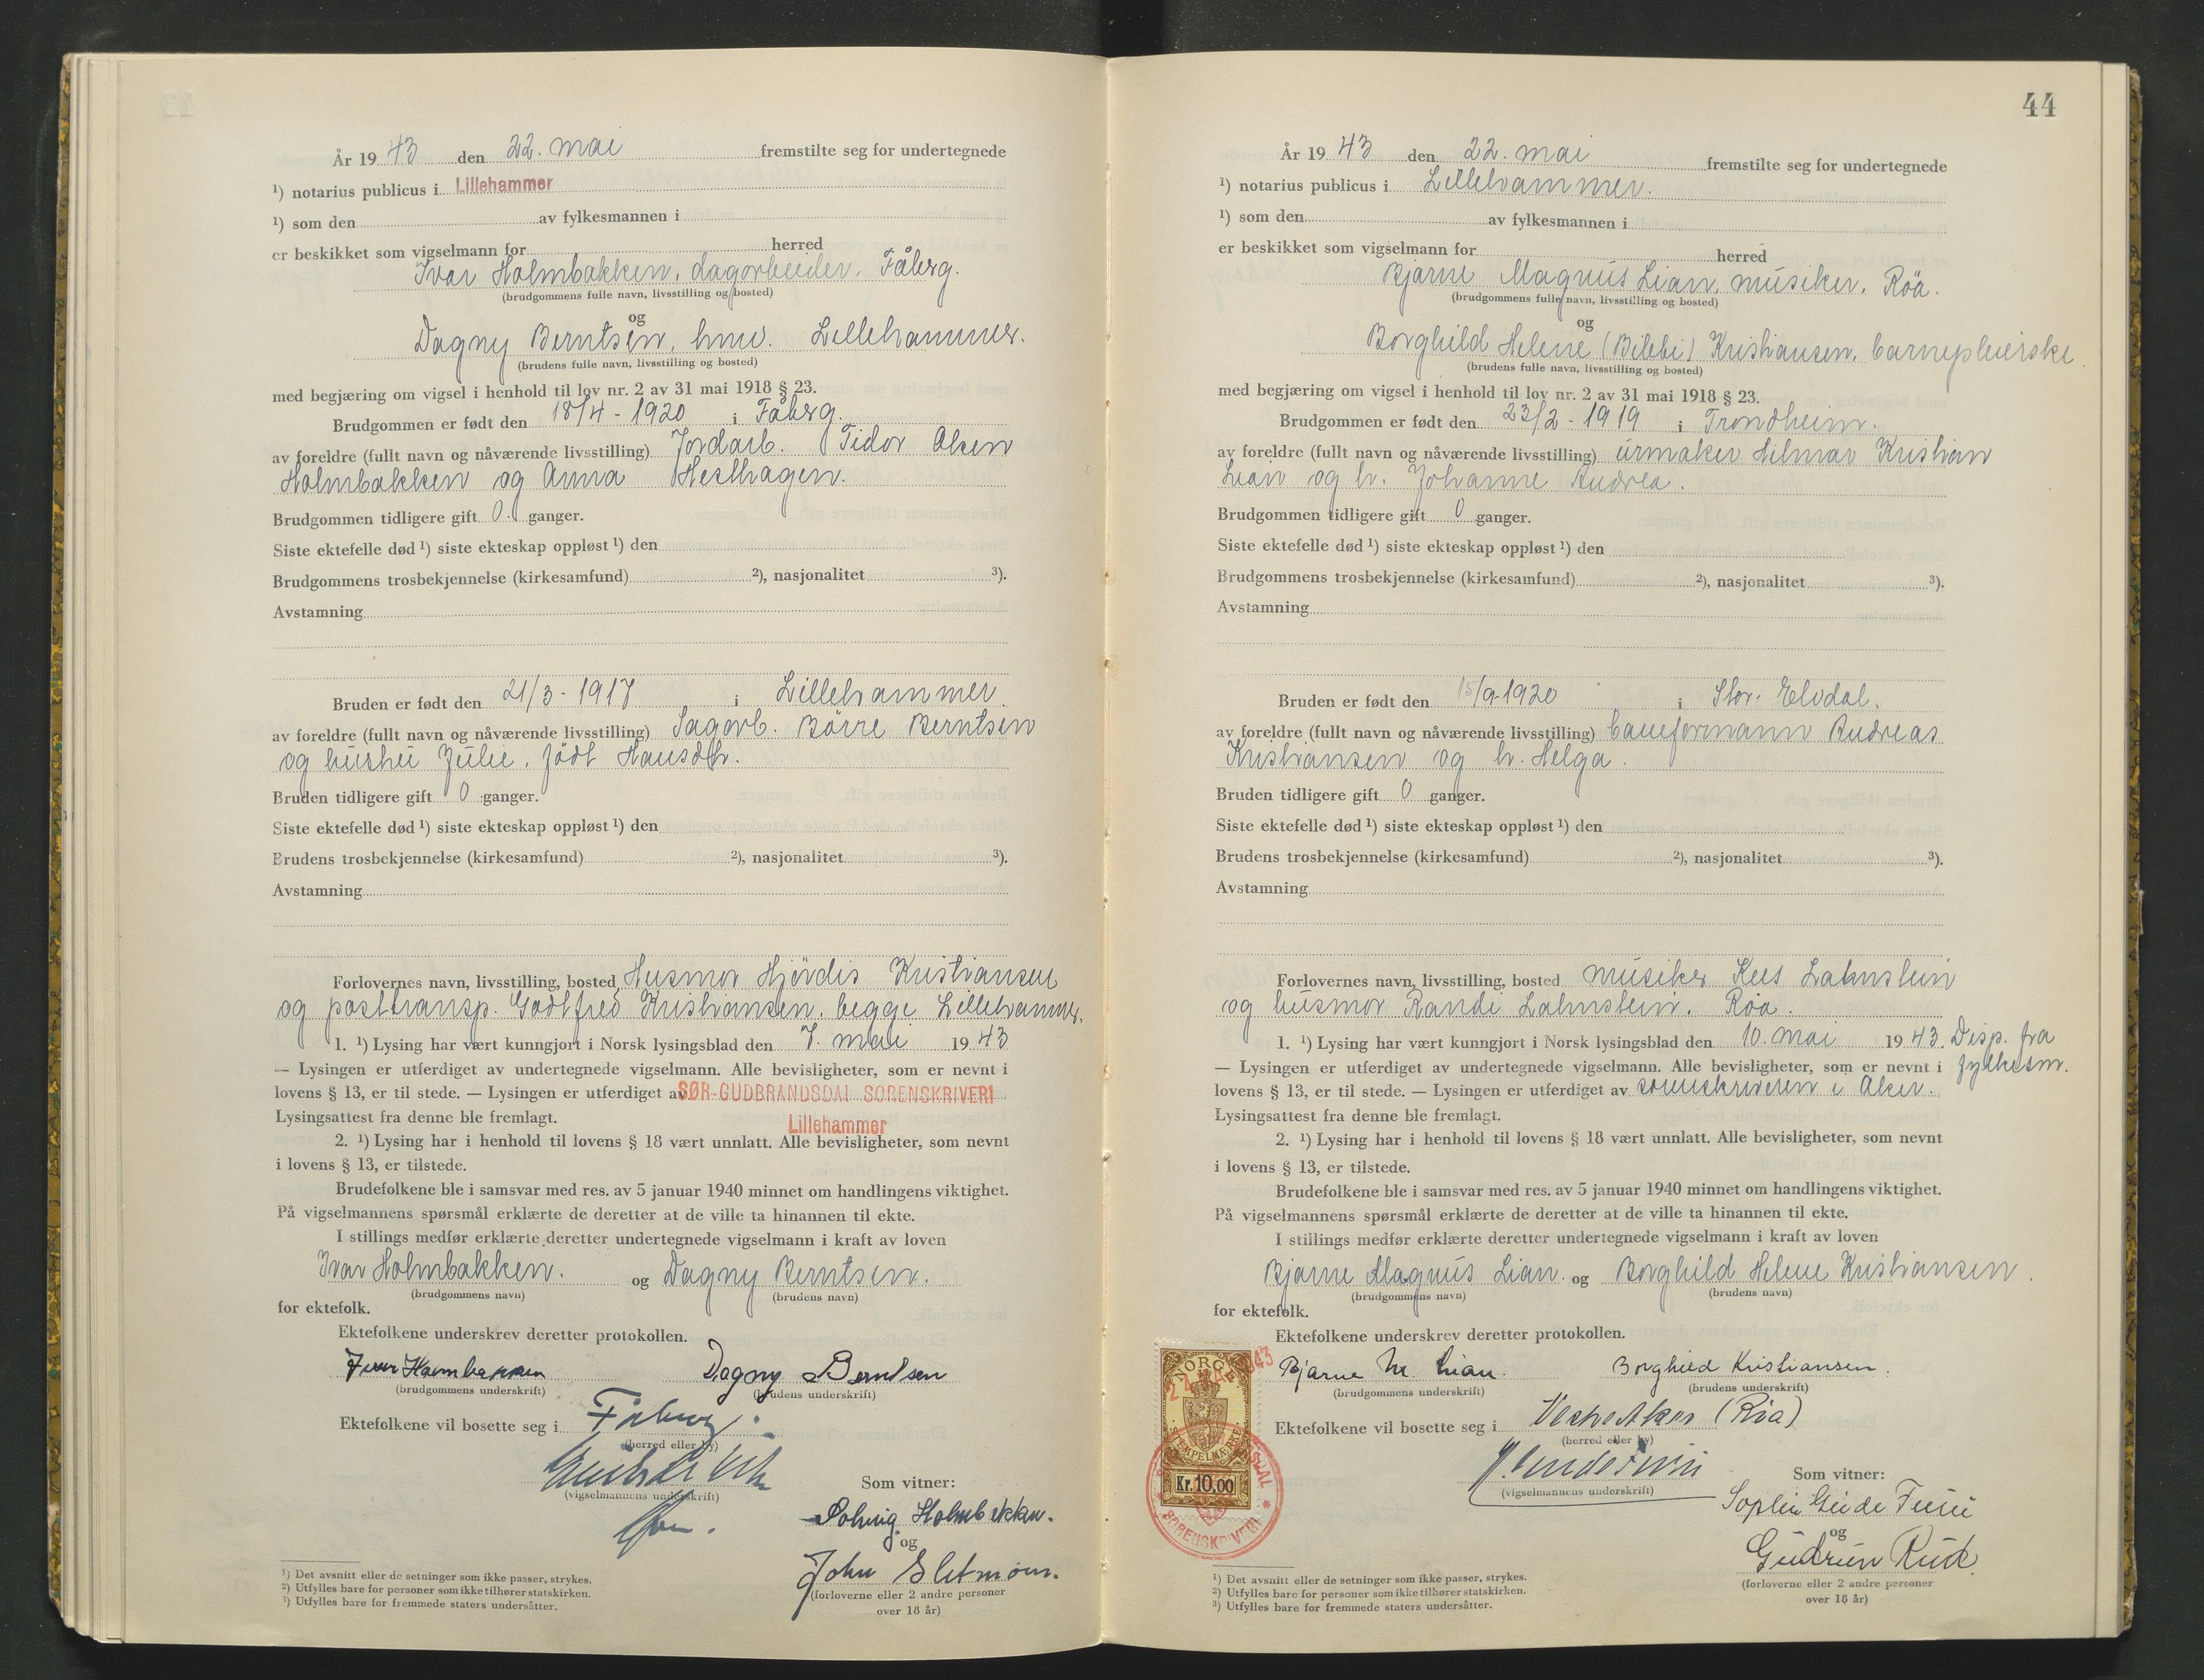 År 19 43 den 22. mai fremstilte seg for undertegnede
¹) notarius publicus i Lillehammer
¹) som den av fylkesmannen i
er beskikket som vigselmann for herred
Ivar Holmbakken, dagarbeider, Fåberg.
(brudgommens fulle navn, livsstilling og bosted)
og
Dagny Berntsen, hmv. Lillehammer.
(brudens fulle navn, livsstilling og bosted)
med begjæring om vigsel i henhold til lov nr. 2 av 31 mai 1918 § 23.
Brudgommen er født den 18/4 - 1920 i Fåberg.
av foreldre (fullt navn og nåværende livsstilling) Jordarb. Tidor Olsen
Holmbakken og Anna Hesthagen.
Brudgommen tidligere gift 0 ganger.
Siste ektefelle død ¹) siste ekteskap oppløst ¹) den
Brudgommens trosbekjennelse (kirkesamfund) ²), nasjonalitet ³).
Avstamning
Bruden er født den 21/3 - 1917 i Lillehammer.
av foreldre (fullt navn og nåværende livsstilling) Sagarb. Børre Berntsen
og hustru Julie, født Hansdtr.
Bruden tidligere gift 0 ganger.
Siste ektefelle død ¹) siste ekteskap oppløst ¹) den
Brudens trosbekjennelse (kirkesamfund) ²), nasjonalitet ³).
Avstamning
Forlovernes navn, livsstilling, bosted Husmor Hjördis Kristiansen
og posttransp. Godtfred Kristiansen, begge Lillehammer.
1. ¹) Lysing har vært kunngjort i Norsk lysingsblad den 7. mai 19 43
— Lysingen er utferdiget av undertegnede vigselmann. Alle bevisligheter, som er nevnt i
lovens § 13, er til stede. — Lysingen er utferdiget av SØR-GUDBRANDSDAL SORENSKRIVERI
Lysingsattest fra denne ble fremlagt. Lillehammer
2. ¹) Lysing har i henhold til lovens § 18 vært unnlatt. Alle bevisligheter, som nevnt
i lovens § 13, er tilstede.
Brudefolkene ble i samsvar med res. av 5 januar 1940 minnet om handlingens viktighet.
På vigselmannens spørsmål erklærte de deretter at de ville ta hinannen til ekte.
I stillings medfør erklærte deretter undertegnede vigselmann i kraft av loven
Ivar Holmbakken. og Dagny Berntsen.
(brudgommens navn) (brudens navn)
for ektefolk.
Ektefolkene underskrev deretter protokollen.
Ivar Holmbakken Dagny Berntsen
(brudgommens underskrift) (brudens underskrift)
Ektefolkene vil bosette seg i Fåberg.
(herred eller by)
(vigselmannens underskrift) Som vitner:
Solveig Holmbakken.
og
John Sletmoen.
(forloverne eller 2 andre personer
over 18 år)
¹) Det avsnitt eller de setninger som ikke passer, strykes.
²) Utfylles bare for personer som ikke tilhører statskirken.
³) Utfylles bare for fremmede staters undersåtter.
44
År 19 43 den 22. mai fremstilte seg for undertegnede
¹) notarius publicus i Lillehammer.
¹) som den av fylkesmannen i
er beskikket som vigselmann for herred
Bjarne Magnus Lian, musiker, Röa.
(brudgommens fulle navn, livsstilling og bosted)
og
Borghild Helene (Bibbi) Kristiansen, barnepleierske.
(brudens fulle navn, livsstilling og bosted)
med begjæring om vigsel i henhold til lov nr. 2 av 31 mai 1918 § 23.
Brudgommen er født den 23/2 - 1919 i Trondheim.
av foreldre (fullt navn og nåværende livsstilling) urmaker Hilmar Kristian
Lian og h. Johanne Andrea.
Brudgommen tidligere gift 0 ganger.
Siste ektefelle død ¹) siste ekteskap oppløst ¹) den
Brudgommens trosbekjennelse (kirkesamfund) ²), nasjonalitet ³).
Avstamning
Bruden er født den 15/9-1920 i Stor-Elvdal.
av foreldre (fullt navn og nåværende livsstilling) baneformann Andreas
Kristiansen og h. Helga.
Bruden tidligere gift 0 ganger.
Siste ektefelle død ¹) siste ekteskap oppløst ¹) den
Brudens trosbekjennelse (kirkesamfund) ²), nasjonalitet ³).
Avstamning
Forlovernes navn, livsstilling, bosted musiker Kees Lahnstein
og husmor Randi Lahnstein, Röa.
1. ¹) Lysing har vært kunngjort i Norsk lysingsblad den 10. mai 19 43. Disp. fra
— Lysingen er utferdiget av undertegnede vigselmann. Alle bevisligheter, som er nevnt i fylkesm.
lovens § 13, er til stede. — Lysingen er utferdiget av sorenskriveren i Aker.
Lysingsattest fra denne ble fremlagt.
2. ¹) Lysing har i henhold til lovens § 18 vært unnlatt. Alle bevisligheter, som nevnt
i lovens § 13, er tilstede.
Brudefolkene ble i samsvar med res. av 5 januar 1940 minnet om handlingens viktighet.
På vigselmannens spørsmål erklærte de deretter at de ville ta hinannen til ekte.
I stillings medfør erklærte deretter undertegnede vigselmann i kraft av loven
Bjarne Magnus Lian. og Borghild Helene Kristiansen.
(brudgommens navn) (brudens navn)
for ektefolk.
Ektefolkene underskrev deretter protokollen.
Bjarne M. Lian. Borghild Kristiansen.
(brudgommens underskrift) (brudens underskrift)
Ektefolkene vil bosette seg i Vestre Aker (Röa)
(herred eller by)
(vigselmannens underskrift) Som vitner:
og
Gudrun Rud.
(forloverne eller 2 andre personer
over 18 år)
NORGE
STEMPELMÆRKE
Kr. 10,00
SORENSKRIVERI
¹) Det avsnitt eller de setninger som ikke passer, strykes.
²) Utfylles bare for personer som ikke tilhører statskirken.
³) Utfylles bare for fremmede staters undersåtter.